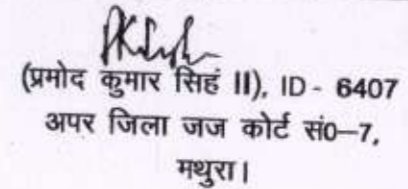 (प्रमोद कुमार सिहं II), ID - 6407
अपर जिला जज कोर्ट सं0-7,
मथुरा।